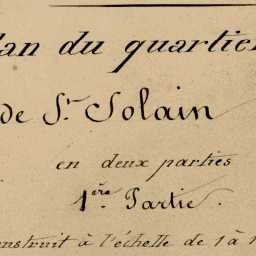 lan du quartier
de St. Solain
en deux parties
1ère Partie.
onstruit à l'échelle de 1 à 1